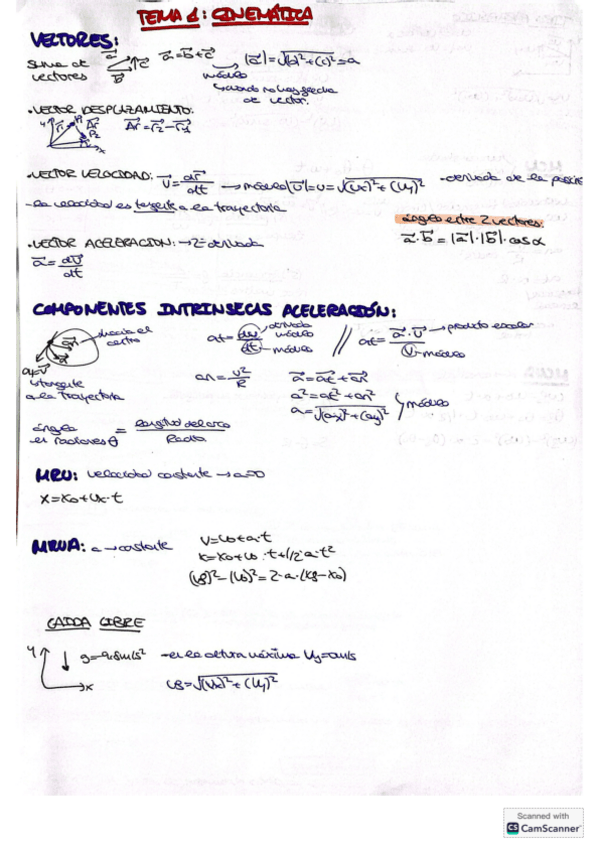 TEMA 1: CINEMÁTICA
VECTORES:
Suma de vectores a⃗ b⃗ c⃗ a⃗=b⃗+c⃗ |a⃗|=√(b)²+(c)²=a
módulo
↳ cuando no hay flecha de vector.
·VECTOR DESPLAZAMIENTO:
Y x Δr⃗=r⃗2-r⃗1
·VECTOR VELOCIDAD: → v⃗=dr⃗/dt → módulo |v⃗|=v=√(Ux)²+(Uy)² -derivada de la
-la velocidad es tangente a la trayectoria
ángulo entre 2 vectores:
a⃗·b⃗=|a⃗|·|b⃗|·cosα
·VECTOR ACELERACION: → 2ª derivada
a⃗=dv⃗/dt
COMPONENTES INTRINSECAS ACELERACIÓN:
hacia el centro
at=dv/dt → derivada módulo // at=a⃗·v⃗/v → producto escalar
-módulo -módulo
tangente a la trayectoria
an=v²/R a⃗=a⃗t+a⃗n
a²=at²+an²
a=√(ax)²+(ay)² módulo
ángulo en radianes θ = longitud del arco/Radio
MRU: velocidad constante → a=0
x=x0+vx·t
MRUA: a → constante
v=v0+a·t
x=x0+v0·t+1/2·a·t²
(vf)²-(v0)²=2·a·(xf-x0)
CAIDA LIBRE
Y x g=9.8m/s² -en la altura máxima Vy=0m/s
vf=√(Vx)²+(Vy)²
Scanned with
CS CamScanner